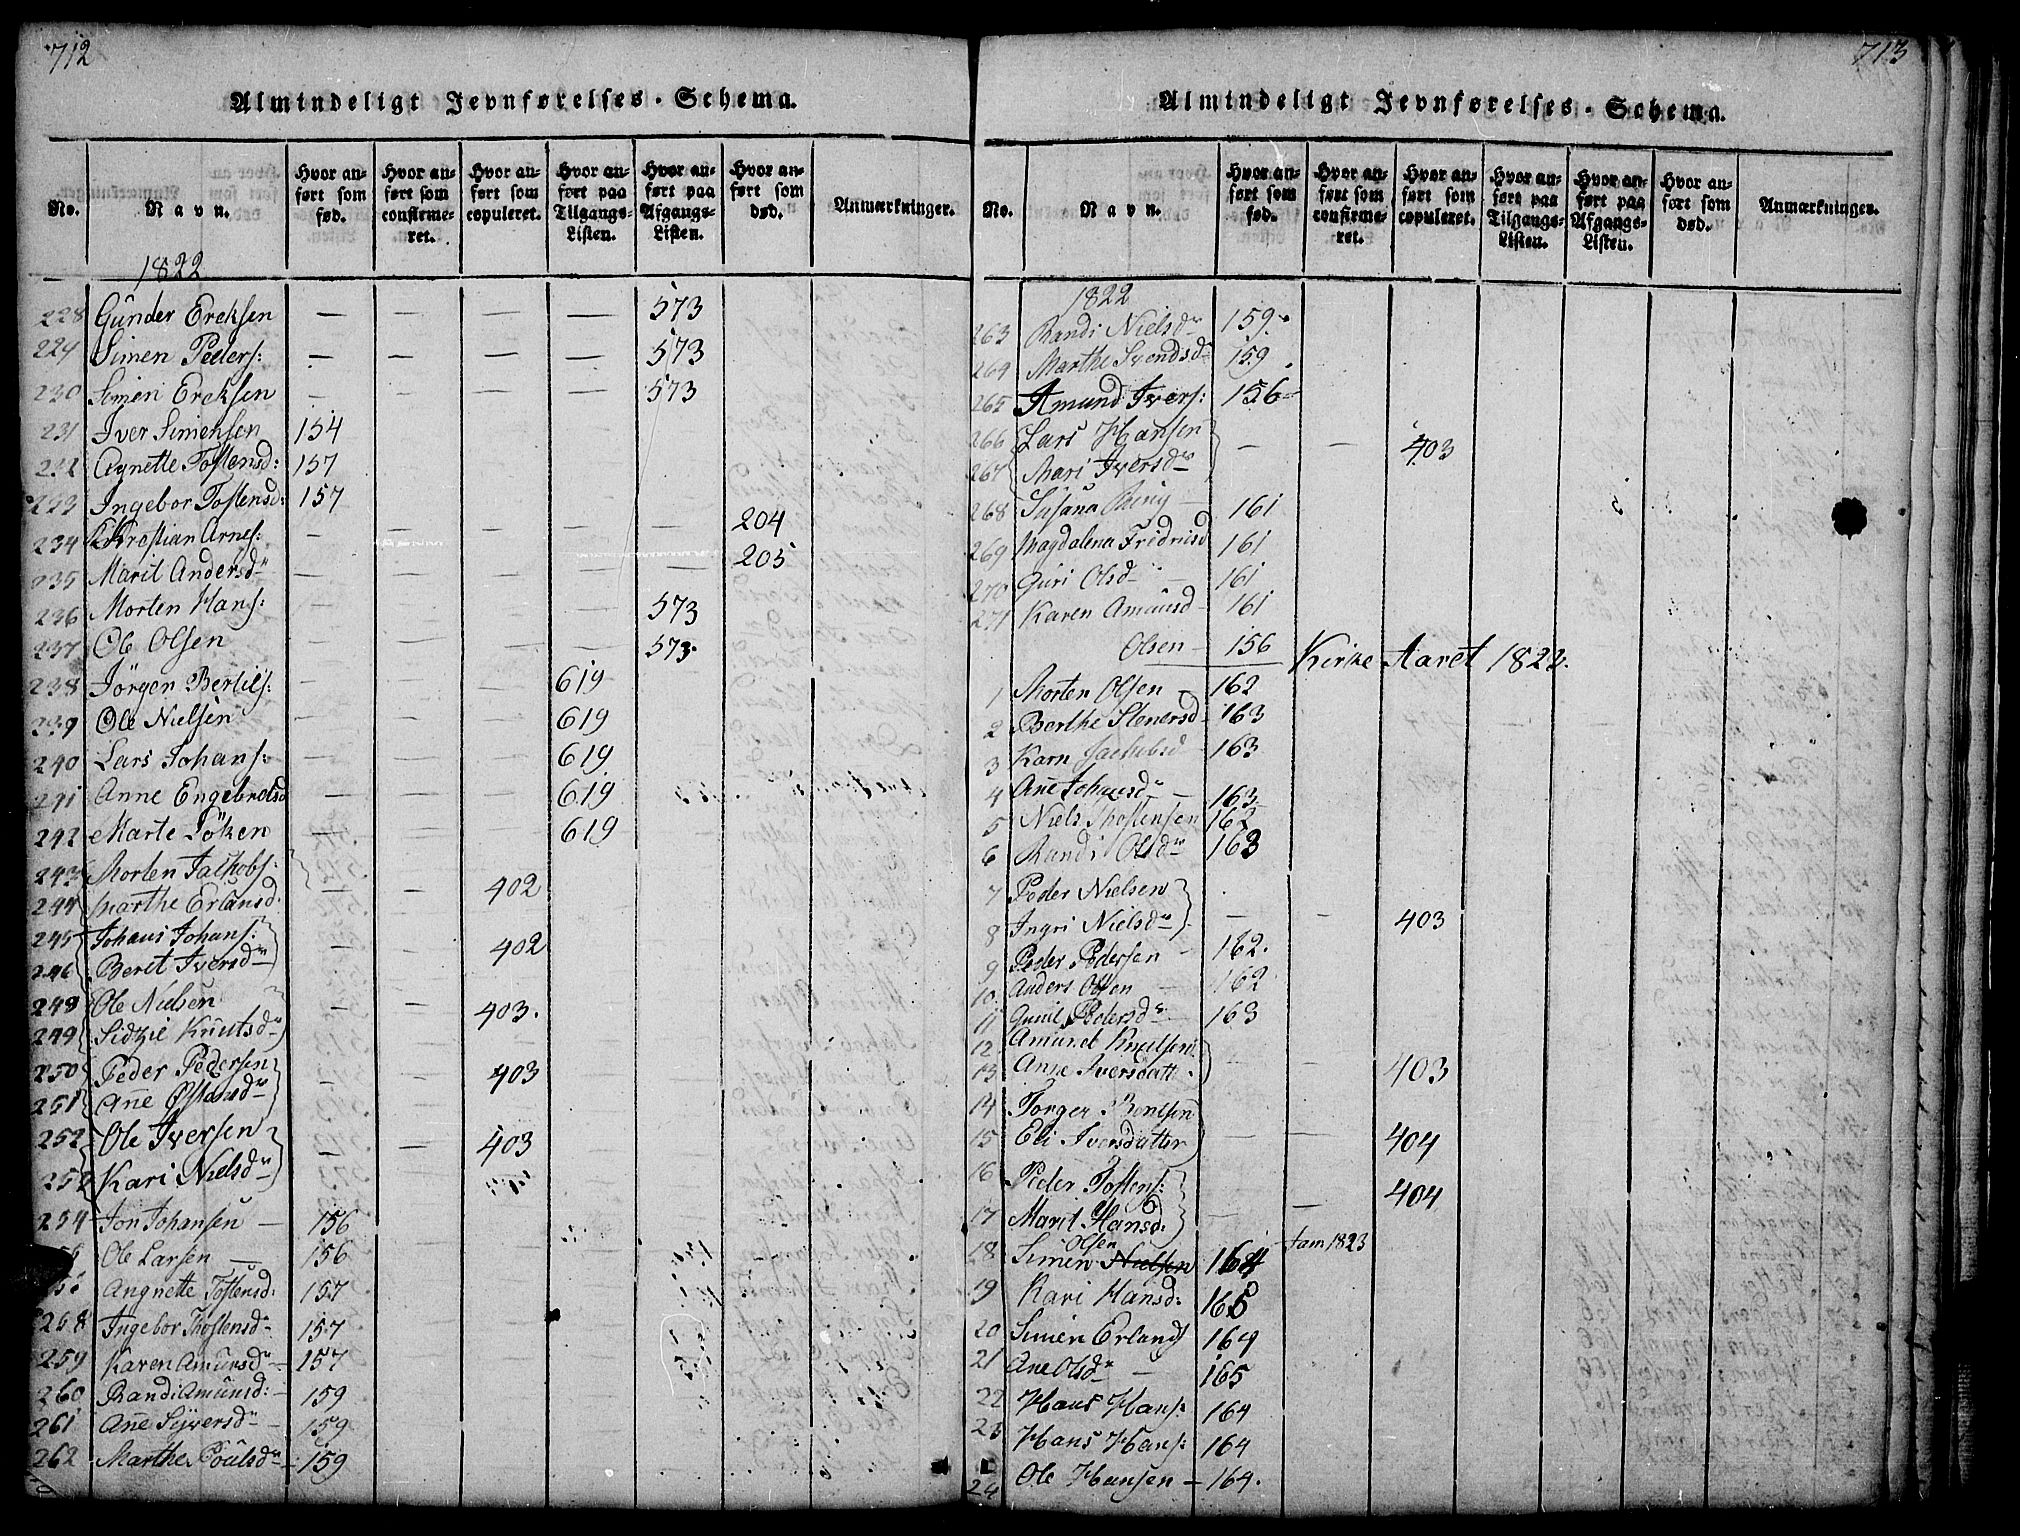 712
Almindeligt Jevnførelses-Schema.
No.
Navn.
Hvor anført som fød.
Hvor anført som confirmeret.
Hvor anført som copuleret.
Hvor anført paa Tilgangs-Listen.
Hvor anført paa Afgangs-Listen.
Hvor anført som død.
Anmærkninger.
1822
228 Gunder Ereksen — — — — 573
229 Simen Peders: — — — — 573
230 Simen Ereksen — — — — 573
231 Iver Simensen 154
232 Agnette Tostensd: 157
233 Ingebor Tostensd: 157
234 Krestian Arnes: — — — — — 204
235 Marit Andersd — — — — — 205
236 Morten Hans: — — — — 573
237 Ole Olsen — — — — 573.
238 Jörgen Bertils: — — — 619
239 Ole Nielsen — — — 619
240 Lars Johans: — — — 619
241 Anne Engebretsd — — — 619
242 Marte — — — 619
243 Morten Jachobs:
244 Marthe Erlansd. — — 402
245 Johans Johans:
246 Beret Iversd — — 402
248 Ole Nielsen
249 Knutsd — — 403.
250 Peder Pedersen
251 Ane — — 403
252 Ole Iversen
253 Kari Nielsd — — 403
254 Jon Johansen — 156
Ole Larsen — 156
Angnette Tostensd: 157
258 Ingebor Thostensd 157
259 Karen Amunsd 157
260 Randi Amunsd: 159
261 Ane Syversd 159
262 Marthe Poulsd 159
713
Almindeligt Jevnførelses-Schema.
No.
Navn.
Hvor anført som fød.
Hvor anført som confirmeret.
Hvor anført som copuleret.
Hvor anført paa Tilgangs-Listen.
Hvor anført paa Afgangs-Listen.
Hvor anført som død.
Anmærkninger.
1822
263 Randi Nielsd 159
264 Marthe Svendsd 159
265 Amund Ivers: 156
266 Lars Hansen
267 Mari Iversd — — 403
268 Susana 161
269 Magdalena Fredriksd 161
270 Guri Olsd 161
271 Karen Amunsd 161
Olsen — 156
Kirke Aaret 1822.
1 Morten Olsen 162
2 Berthe Stenersd 163
3 Karn Jachobsd 163
4 Ane Johansd 163
5 Niels Thostensen 162
6 Randi Olsd 163
7 Peder Nielsen
8 Ingri Nielsd — — 403
9 Peder Pedersen — 162.
10 Anders Olsen — 162
11 Gunil Pedersd 163
12 Amund Knudsen
13 Anne Iversdatt — — 403
14 Torger Bentsen
15 Eli Iversdatter — — 404
16 Peder Tostens:
17 Marit Hansd: — — 404
Olsen
18 Simen Nielsen 164 Jam 1823
19 Kari Hansd: 165
20 Simen Erlands 164
21 Ane Olsd — 165
22 Hans Hans: 164
23 Hans Hans: 164
24 Ole Hansen — 164.